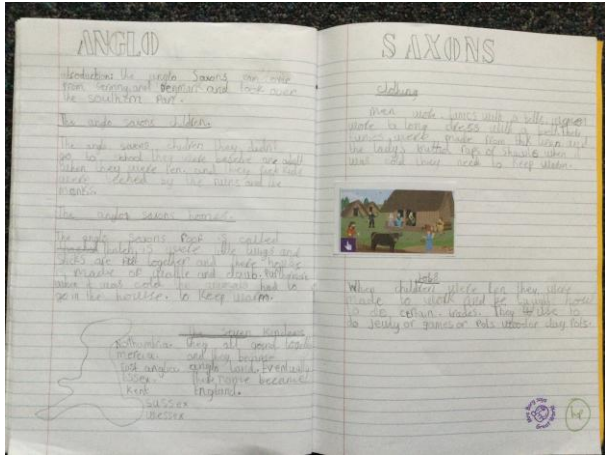 ANGLO
introduction: the anglo Saxons came over
from Germany and Denmark and took over
the southern Part.
The anglo saxons children.
The anglo saxons children they didn't
go to school they were became one adult
when they were ten and they
were teched by the nuns and the
monks.
The anglo saxons homes.
The anglo Saxons Roof is called
thatch is where little twigs and
sticks are Put together and there houses
is made of wattle and daub.
when it was cold the animals had to
go in the house. to keep warm.
The seven kingdoms
Northumbria. they all joined together
mercia. and they became
East anglia angle land. Eventually
Essex. their name became
Kent England.
Sussex
Wessex
SAXONS
Clothing
Men wore tunics with a belt, women
wore a long dress with a belt there
tunics were made from
the lady's Put on shawls when it
was cold they to keep warm.
Jobs
When children were ten they were
made to work and be taught how
to do certain trades. They
to jewelry or games or Pots wooden clay Pots.